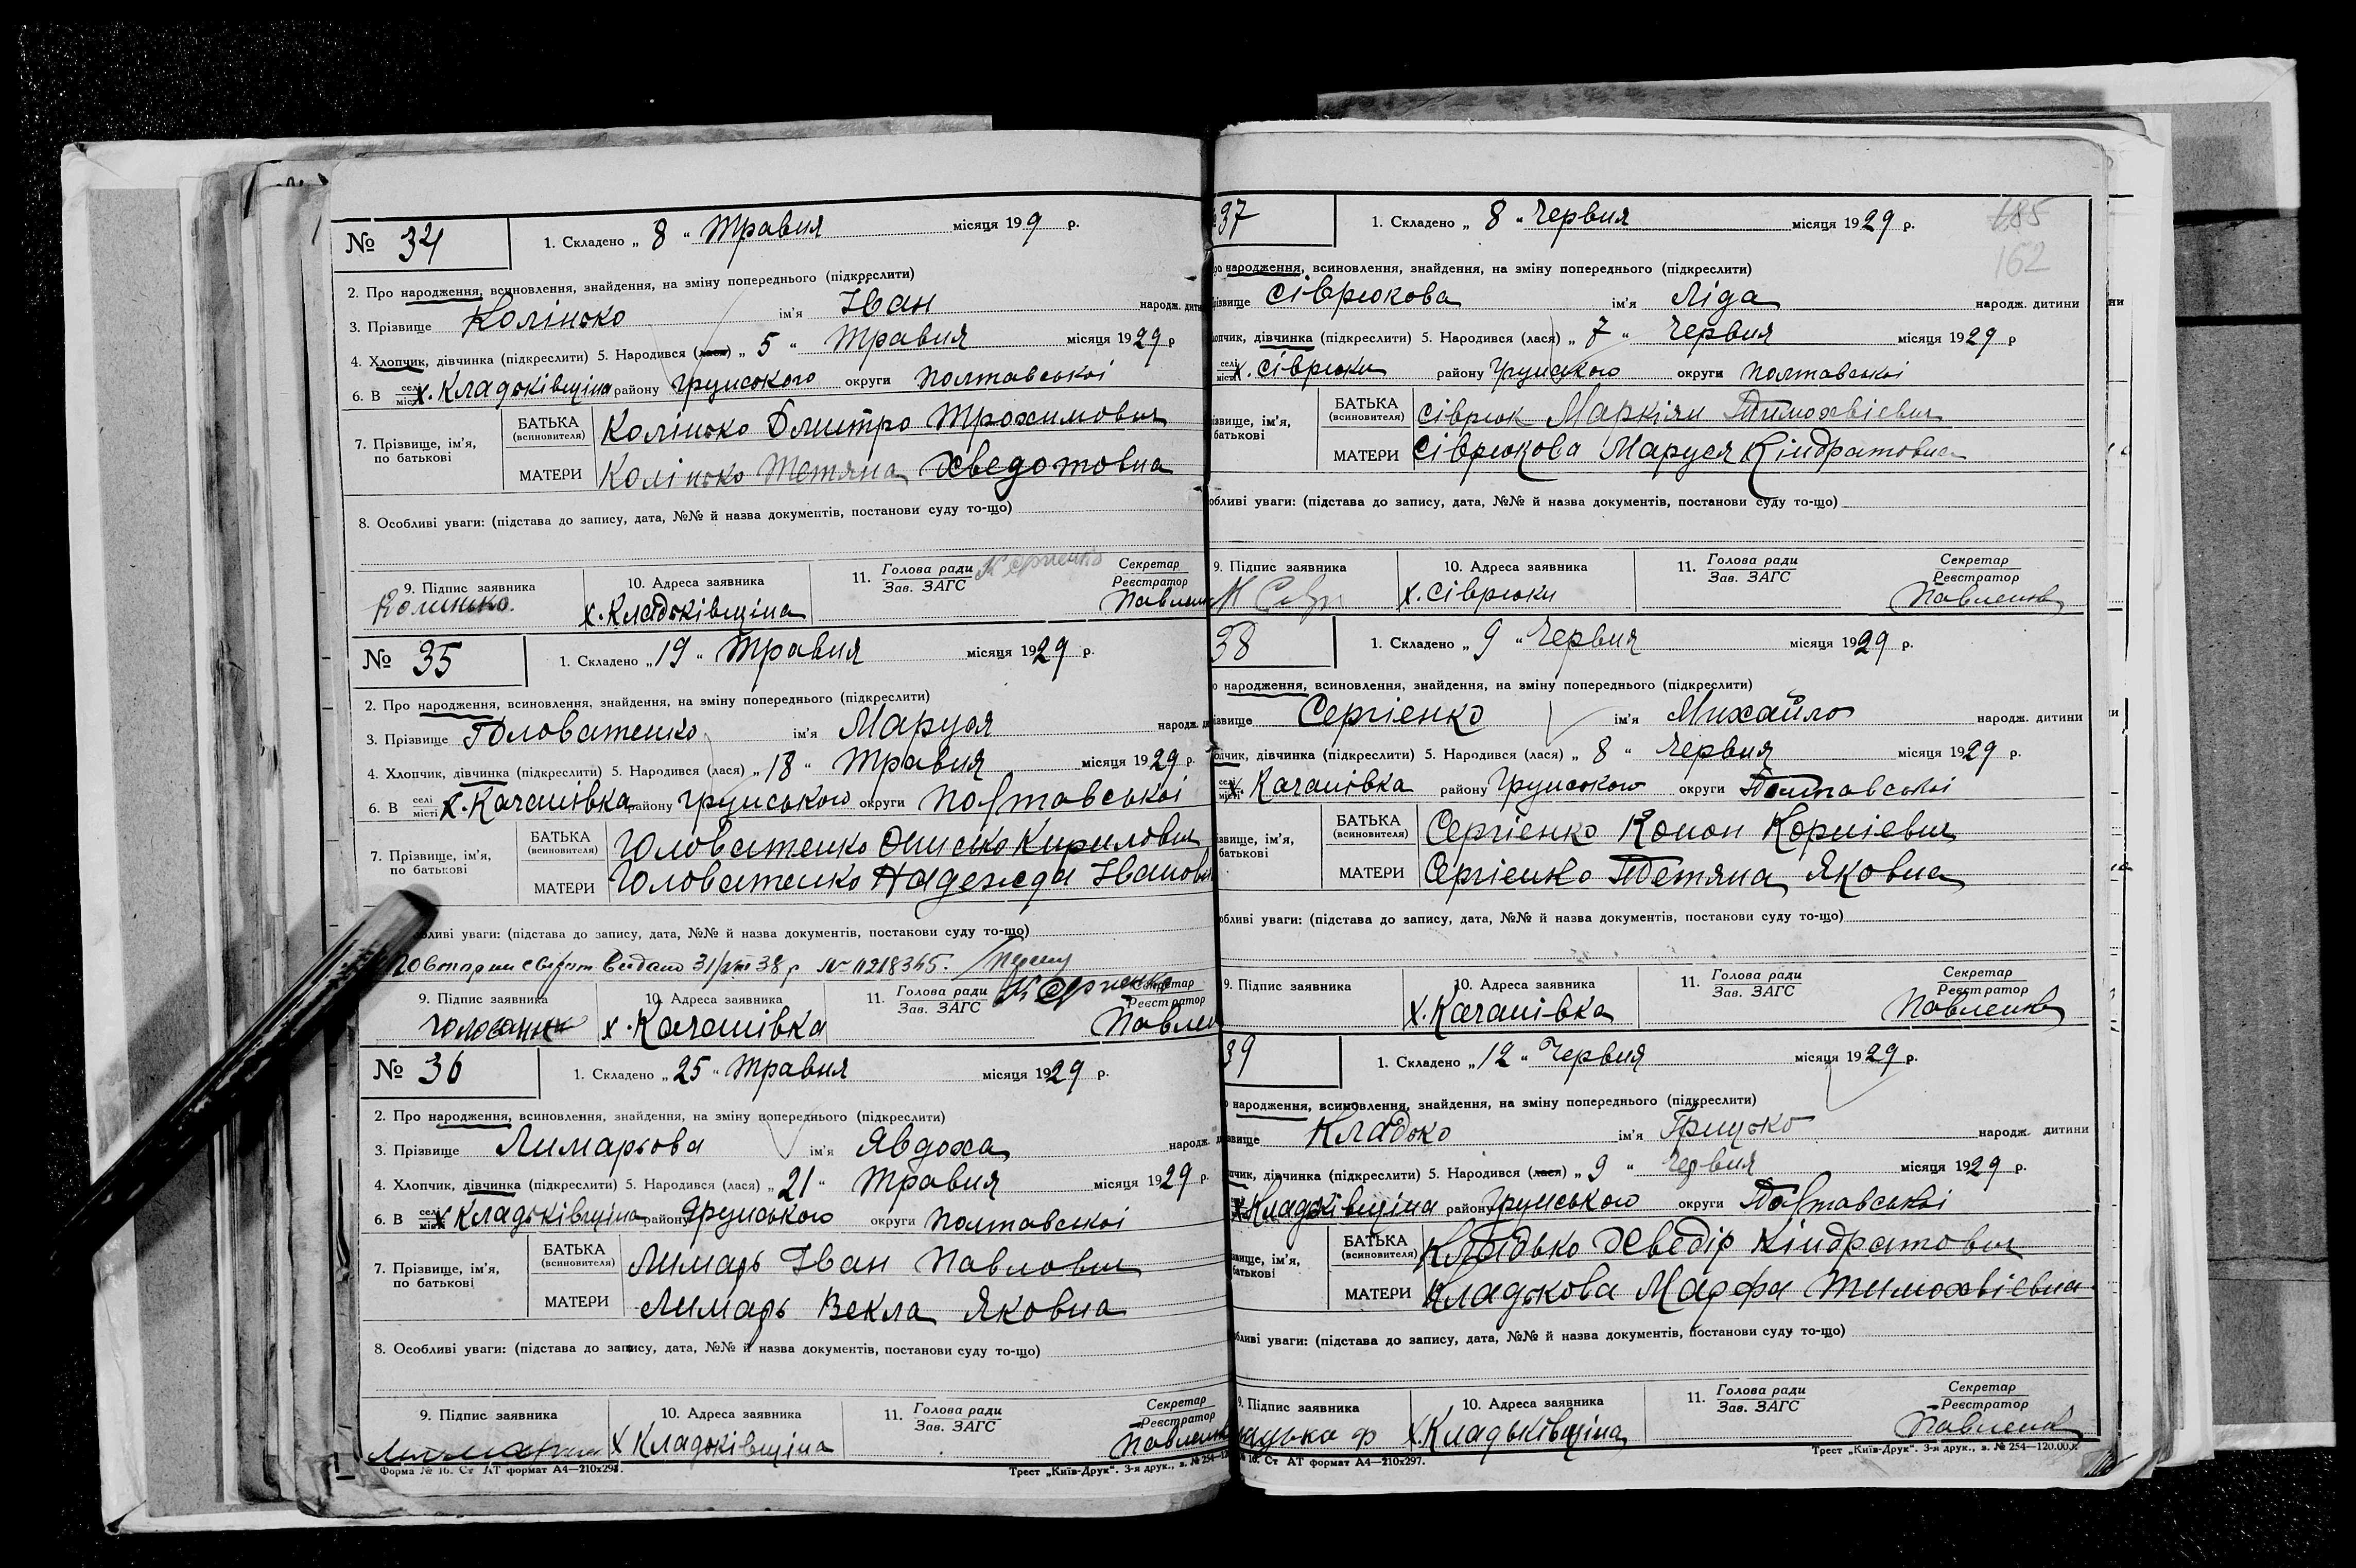 № 34
1. Складено „ 8 “ Травня місяця 19 9 р.
2. Про народження, всиновлення, знайдення, на зміну попереднього (підкреслити)
3. Прізвище Колінько ім'я Іван народж. дити
4. Хлопчик, дівчинка (підкреслити) 5. Народився (лася) „ 5 “ Травня місяця 1929 р
6. В селі місті х. Кладьківщіна району Грунського округи Полтавської
7. Прізвище, ім'я, по батькові
БАТЬКА (всиновителя) Колінько Дмитро Трохимович
МАТЕРИ Колінько Тетяна Хведотовна
8. Особливі уваги: (підстава до запису, дата, №№ й назва документів, постанови суду то-що)
9. Підпис заявника 10. Адреса заявника 11. Голова ради Зав. ЗАГС Секретар Реєстратор
Колинько. х. Кладьківщіна Павлен
№ 35
1. Складено „ 19 “ Травня місяця 1929 р.
2. Про народження, всиновлення, знайдення, на зміну попереднього (підкреслити)
3. Прізвище Головатенко ім'я Маруся народж.
4. Хлопчик, дівчинка (підкреслити) 5. Народився (лася) „ 18 “ Травня місяця 1929 р.
6. В селі місті х. Качанівка району Грунського округи Полтавської
7. Прізвище, ім'я, по батькові
БАТЬКА (всиновителя) Головатенко Онисько Кирилович
МАТЕРИ Головатенко Надежда Іванов
уваги: (підстава до запису, дата, №№ й назва документів, постанови суду то-що)
видано 38 р №
9. Підпис заявника 10. Адреса заявника 11. Голова ради Зав. ЗАГС Секретар Реєстратор
х. Качанівка Павлен
№ 36
1. Складено „ 25 “ Травня місяця 1929 р.
2. Про народження, всиновлення, знайдення, на зміну попереднього (підкреслити)
3. Прізвище Лимарьова ім'я Явдоха народж.
4. Хлопчик, дівчинка (підкреслити) 5. Народився (лася) „ 21 “ Травня місяця 1929 р.
6. В селі місті х Кладьківщіна району Грунського округи Полтавської
7. Прізвище, ім'я, по батькові
БАТЬКА (всиновителя) Лимарь Іван Павлович
МАТЕРИ Лимарь Векла Яковна
8. Особливі уваги: (підстава до запису, дата, №№ й назва документів, постанови суду то-що)
9. Підпис заявника 10. Адреса заявника 11. Голова ради Зав. ЗАГС Секретар Реєстратор
х Кладьківщіна Павленк
Форма № 16. Ст АТ формат А4—210х297.
Трест „Київ-Друк“. 3-я друк., з. № 254—12
185
162
37
1. Складено „ 8 “ Червня місяця 1929 р.
народження, всиновлення, знайдення, на зміну попереднього (підкреслити)
Сіврюкова ім'я Ліда народж. дитини
дівчинка (підкреслити) 5. Народився (лася) „ 7 “ Червня місяця 1929 р
селі місті х. Сіврюки району Грунського округи Полтавської
ім'я, батькові
БАТЬКА (всиновителя) Сіврюк Маркіян Тимохвієвич
МАТЕРИ Сіврюкова Маруся Кіндратовна
уваги: (підстава до запису, дата, №№ й назва документів, постанови суду то-що)
9. Підпис заявника 10. Адреса заявника 11. Голова ради Зав. ЗАГС Секретар Реєстратор
х. Сіврюки Павленко
38
1. Складено „ 9 “ Червня місяця 1929 р.
народження, всиновлення, знайдення, на зміну попереднього (підкреслити)
Сергієнко ім'я Михайло народж. дитини
дівчинка (підкреслити) 5. Народився (лася) „ 8 “ Червня місяця 1929 р.
селі місті х. Качанівка району Грунського округи Полтавської
ім'я, батькові
БАТЬКА (всиновителя) Сергієнко Конон Корнієвич
МАТЕРИ Сергієнко Тетяна Яковна
уваги: (підстава до запису, дата, №№ й назва документів, постанови суду то-що)
9. Підпис заявника 10. Адреса заявника 11. Голова ради Зав. ЗАГС Секретар Реєстратор
х. Качанівка Павленко
39
1. Складено „ 12 “ Червня місяця 1929 р.
народження, всиновлення, знайдення, на зміну попереднього (підкреслити)
Кладько ім'я Грицько народж. дитини
дівчинка (підкреслити) 5. Народився (лася) „ 9 “ Червня місяця 1929 р.
х Кладьківщіна району Грунського округи Полтавської
ім'я, батькові
БАТЬКА (всиновителя) Кладько Хведір Кіндратович
МАТЕРИ Кладькова Марфа Тимохвієвна
уваги: (підстава до запису, дата, №№ й назва документів, постанови суду то-що)
9. Підпис заявника 10. Адреса заявника 11. Голова ради Зав. ЗАГС Секретар Реєстратор
х Кладьківщіна Павленко
№ 16. Ст АТ формат А4—210х297.
Трест „Київ-Друк“. 3-я друк., з. № 254—120.00